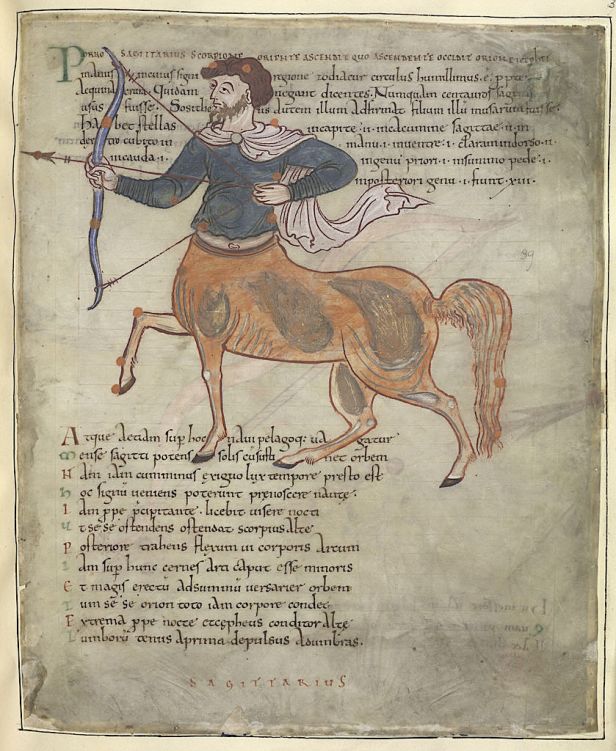 PORRO SAGITTARIUS SCORPIONE ORIENTE ASCENDIT QUO ASCENDENTE OCCIDIT ORION
signi regione zodiacur circulus humillimus. e.
Quidam negant dicentes. Nunquam centauros sagittis
usus fuisse. Sosithe us autem illum Adfirmat filium illũ musarũ fuisse.
Habet stellas incapite. ii. incacumine sagittae. ii. in
dextro cubito. iii. manu. i. inventre. i. claram indorso. ii.
incauda. i. ingenu priori. i. insummo pede. i.
inposteriori genu. i. fiunt. xiii.
39
Atque &ciam sup hoc navi pelagoq; vagatur
Mense sagitti potens solis cũ sustinet orbem
Nam iam cumminus exiguo lux tempore presto est
Hoc signũ veniens poterunt prenoscere naute.
Iam ppe pcipitante. licebit visere nocti
Ut sese ostendens ostendat scorpius alte
Posteriore trahens flexum vi corporis arcum
Iam sup hunc cernes arti caput esse minoris
Et magis erectũ adsummũ versarier orbem
Tum se se orion toto iam corpore condet
Extrema ppe nocte et cepheus conditor alte
Lumborũ tenus aprima depulsus adumbras.
SAGITTARIUS